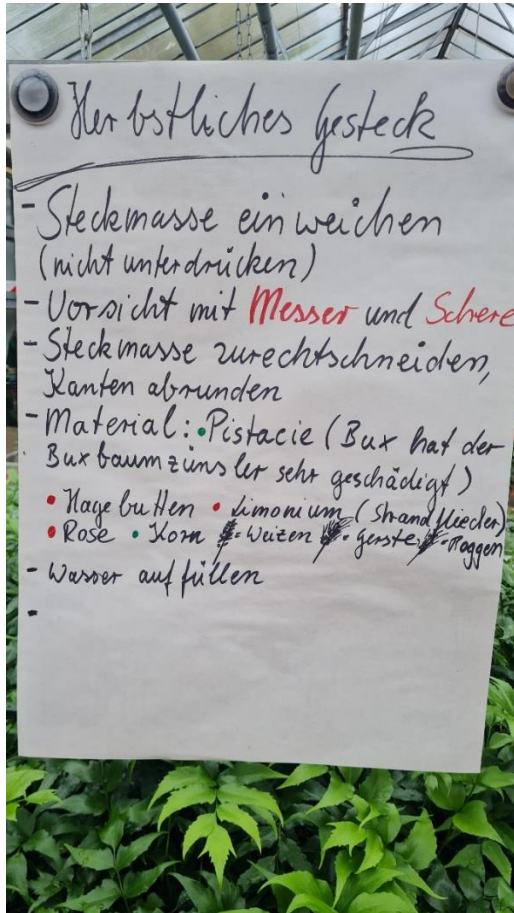 Herbstliches Gesteck
- Steckmasse einweichen
(nicht unterdrücken)
- Vorsicht mit Messer und Schere
- Steckmasse zurechtschneiden,
Kanten abrunden
- Material: • Pistacie (Bux hat der
Buxbaumzünsler sehr geschädigt)
• Hagebutten • Limonium (Strandflieder)
• Rose • Korn - Weizen - Gerste - Roggen
- Wasser auffüllen
-